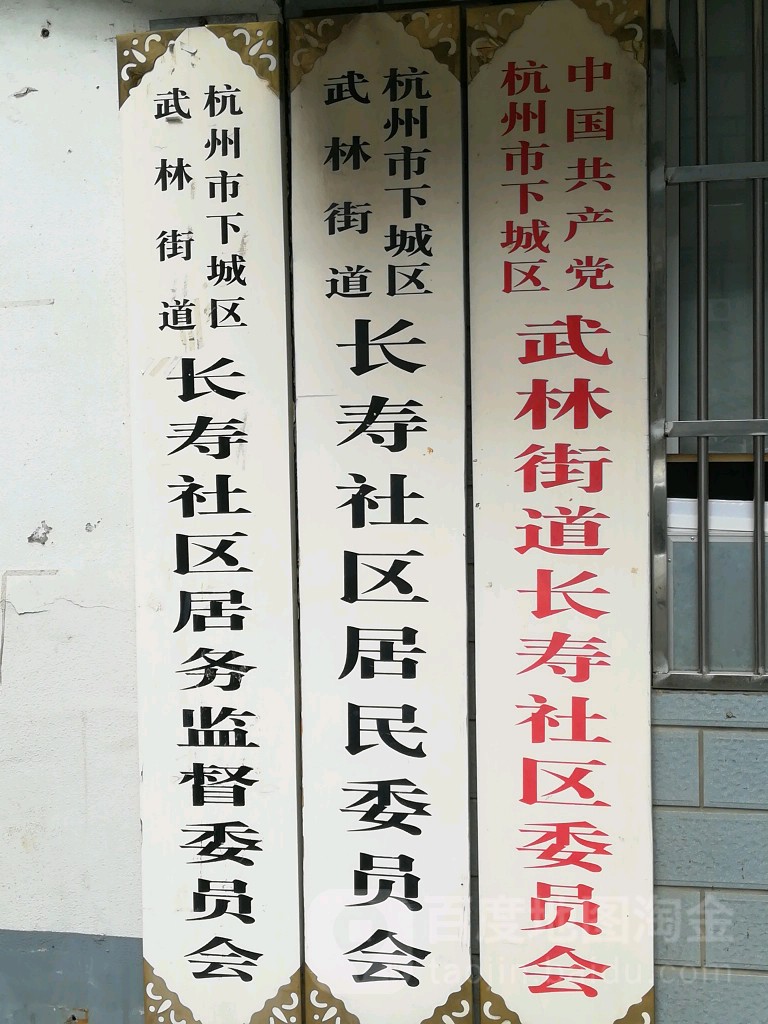 中国共产党
杭州市下城区
武林街道长寿社区委员会
杭州市下城区
武林街道
长寿社区居民委员会
杭州市下城区
武林街道
长寿社区居务监督委员会
百度地图淘金